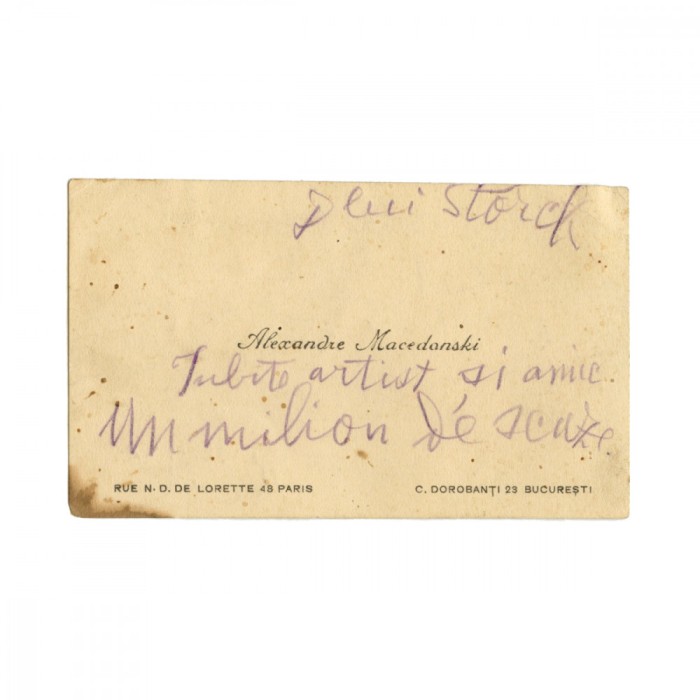 Dlui Storck
Alexandre Macedonski
Iubite artist si amic
Un milion de scuze
RUE N. D. DE LORETTE 48 PARIS
C. DOROBANȚI 23 BUCUREȘTI